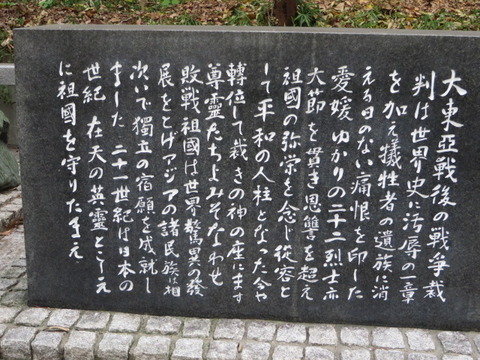 大東亞戦後の戦争裁
判は世界史に汚辱の一章
を加え犠牲者の遺族に消
える日のない痛恨を印した
愛媛ゆかりの二十二烈士亦
大節を貫き恩讐を超え
祖國の弥栄を念じ従容と
して平和の人柱となった今や
轉位して裁きの神の座にます
尊霊たちよみそなわせ
敗戦祖國は世界驚異の發
展をとげアジアの諸民族は相
次いで獨立の宿願を成就し
ました 二十一世紀は日本の
世紀 在天の英霊とこしえ
に祖國を守りたまえ